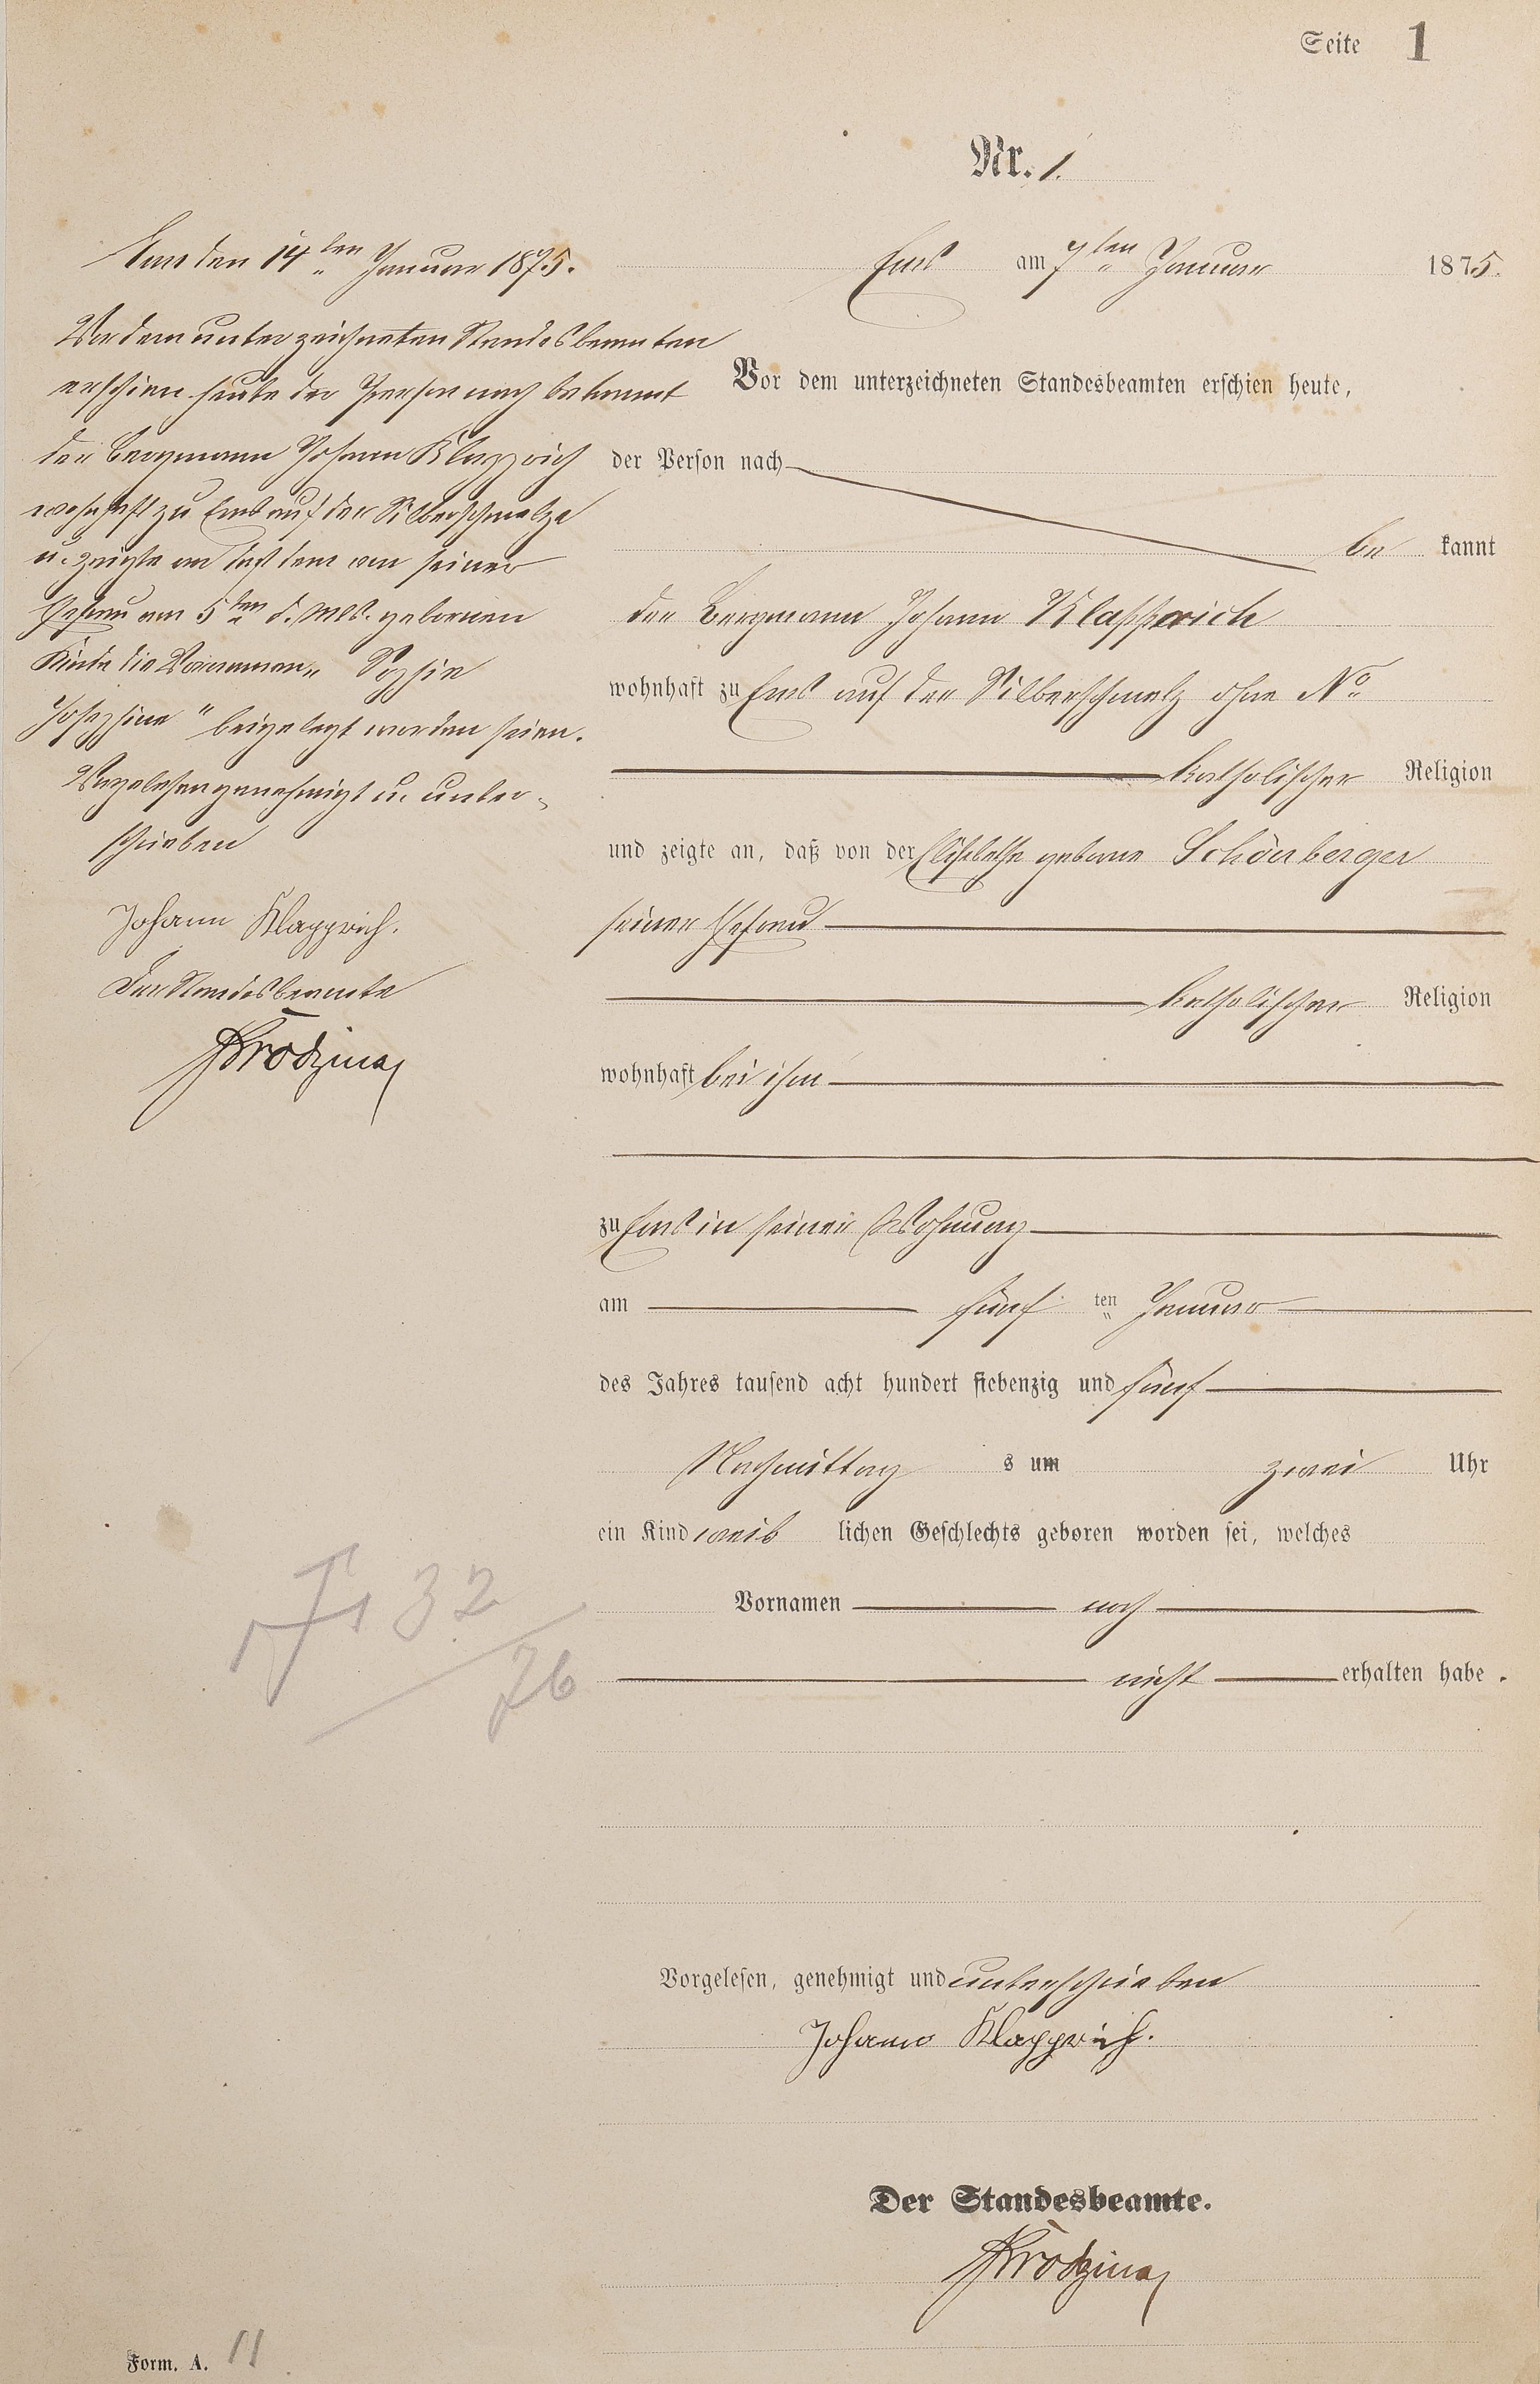 Seite 1
Nr. 1.
Ems den 14ten Januar 1875.
Vor dem unterzeichneten Standesbeamten
erschien heute der Person nach bekannt
der Bergmann Johann Klapprich
wohnhaft zu Ems auf der Silberschmelze
u. zeigte an daß dem von seiner
Ehefrau am 5ten d. Mts. gebornen
Kinde die Vornamen „Sophie
Josephine" beigelegt worden seien.
Vorgelesen genehmigt u. unter-
schrieben
Johann Klapprich.
Der Standesbeamte
Ems am 7ten Januar 1875.
Vor dem unterzeichneten Standesbeamten erschien heute,
der Person nach
be kannt
der Bergmann Johann Klapprich
wohnhaft zu Ems auf der Silberschmelz ohne No
katholischer Religion
und zeigte an, daß von der Elisabethe geborne Schönberger
seiner Ehefrau
katholischer Religion
wohnhaft bei ihm
zu Ems in seiner Wohnung
am fünf ten Januar
des Jahres tausend acht hundert siebenzig und fünf
Nachmittag s um zwei Uhr
ein Kind weib lichen Geschlechts geboren worden sei, welches
Vornamen noch
nicht erhalten habe.
32
76
Vorgelesen, genehmigt und unterschrieben
Johann Klapprich.
Der Standesbeamte.
Form. A. 11